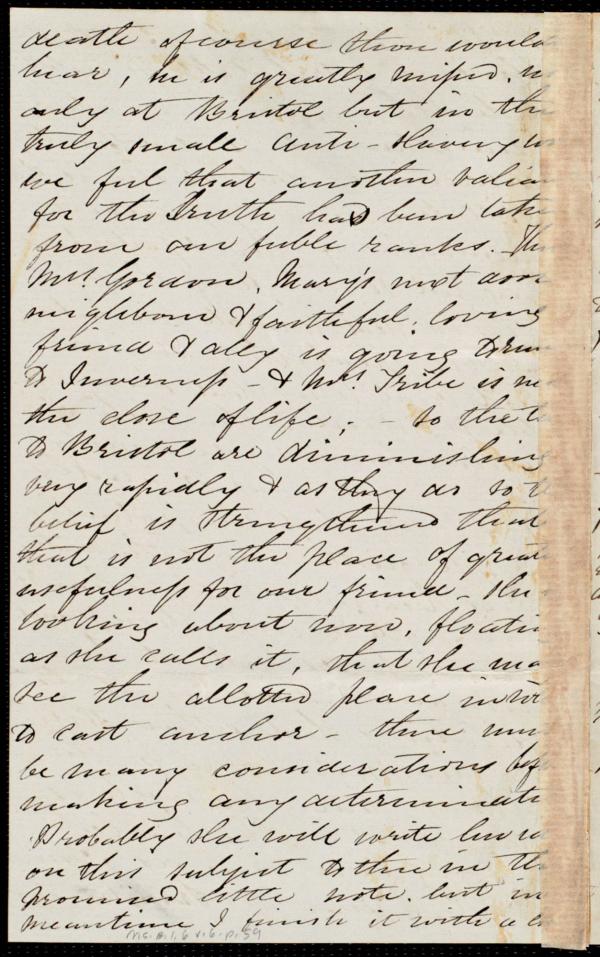 death of course thou would
hear, he is greatly missed, n
only at Bristol but in the
truly small Anti-Slavery w
we feel that another valia
for the Truth has been take
from our feeble ranks. The
Mrs. Gordon, Mary's next door
neighbour & faithful, loving
friend & ally is going
to Inverness - & Mrs. Tribe is ne
the close of life; - so the t
to Bristol are diminishing
very rapidly & as they do so t
belief is strengthened that
that is not the place of great
usefulness for our friend - she
looking about now, floatin
as she calls it, that she ma
see the allotted place in w
to cast anchor - there mu
be many considerations bef
making any determinati
Probably she will write
on this subject to thee in th
promised little note. but in
meantime I finish it with a
Ms. A.1.6 v.6 p.59